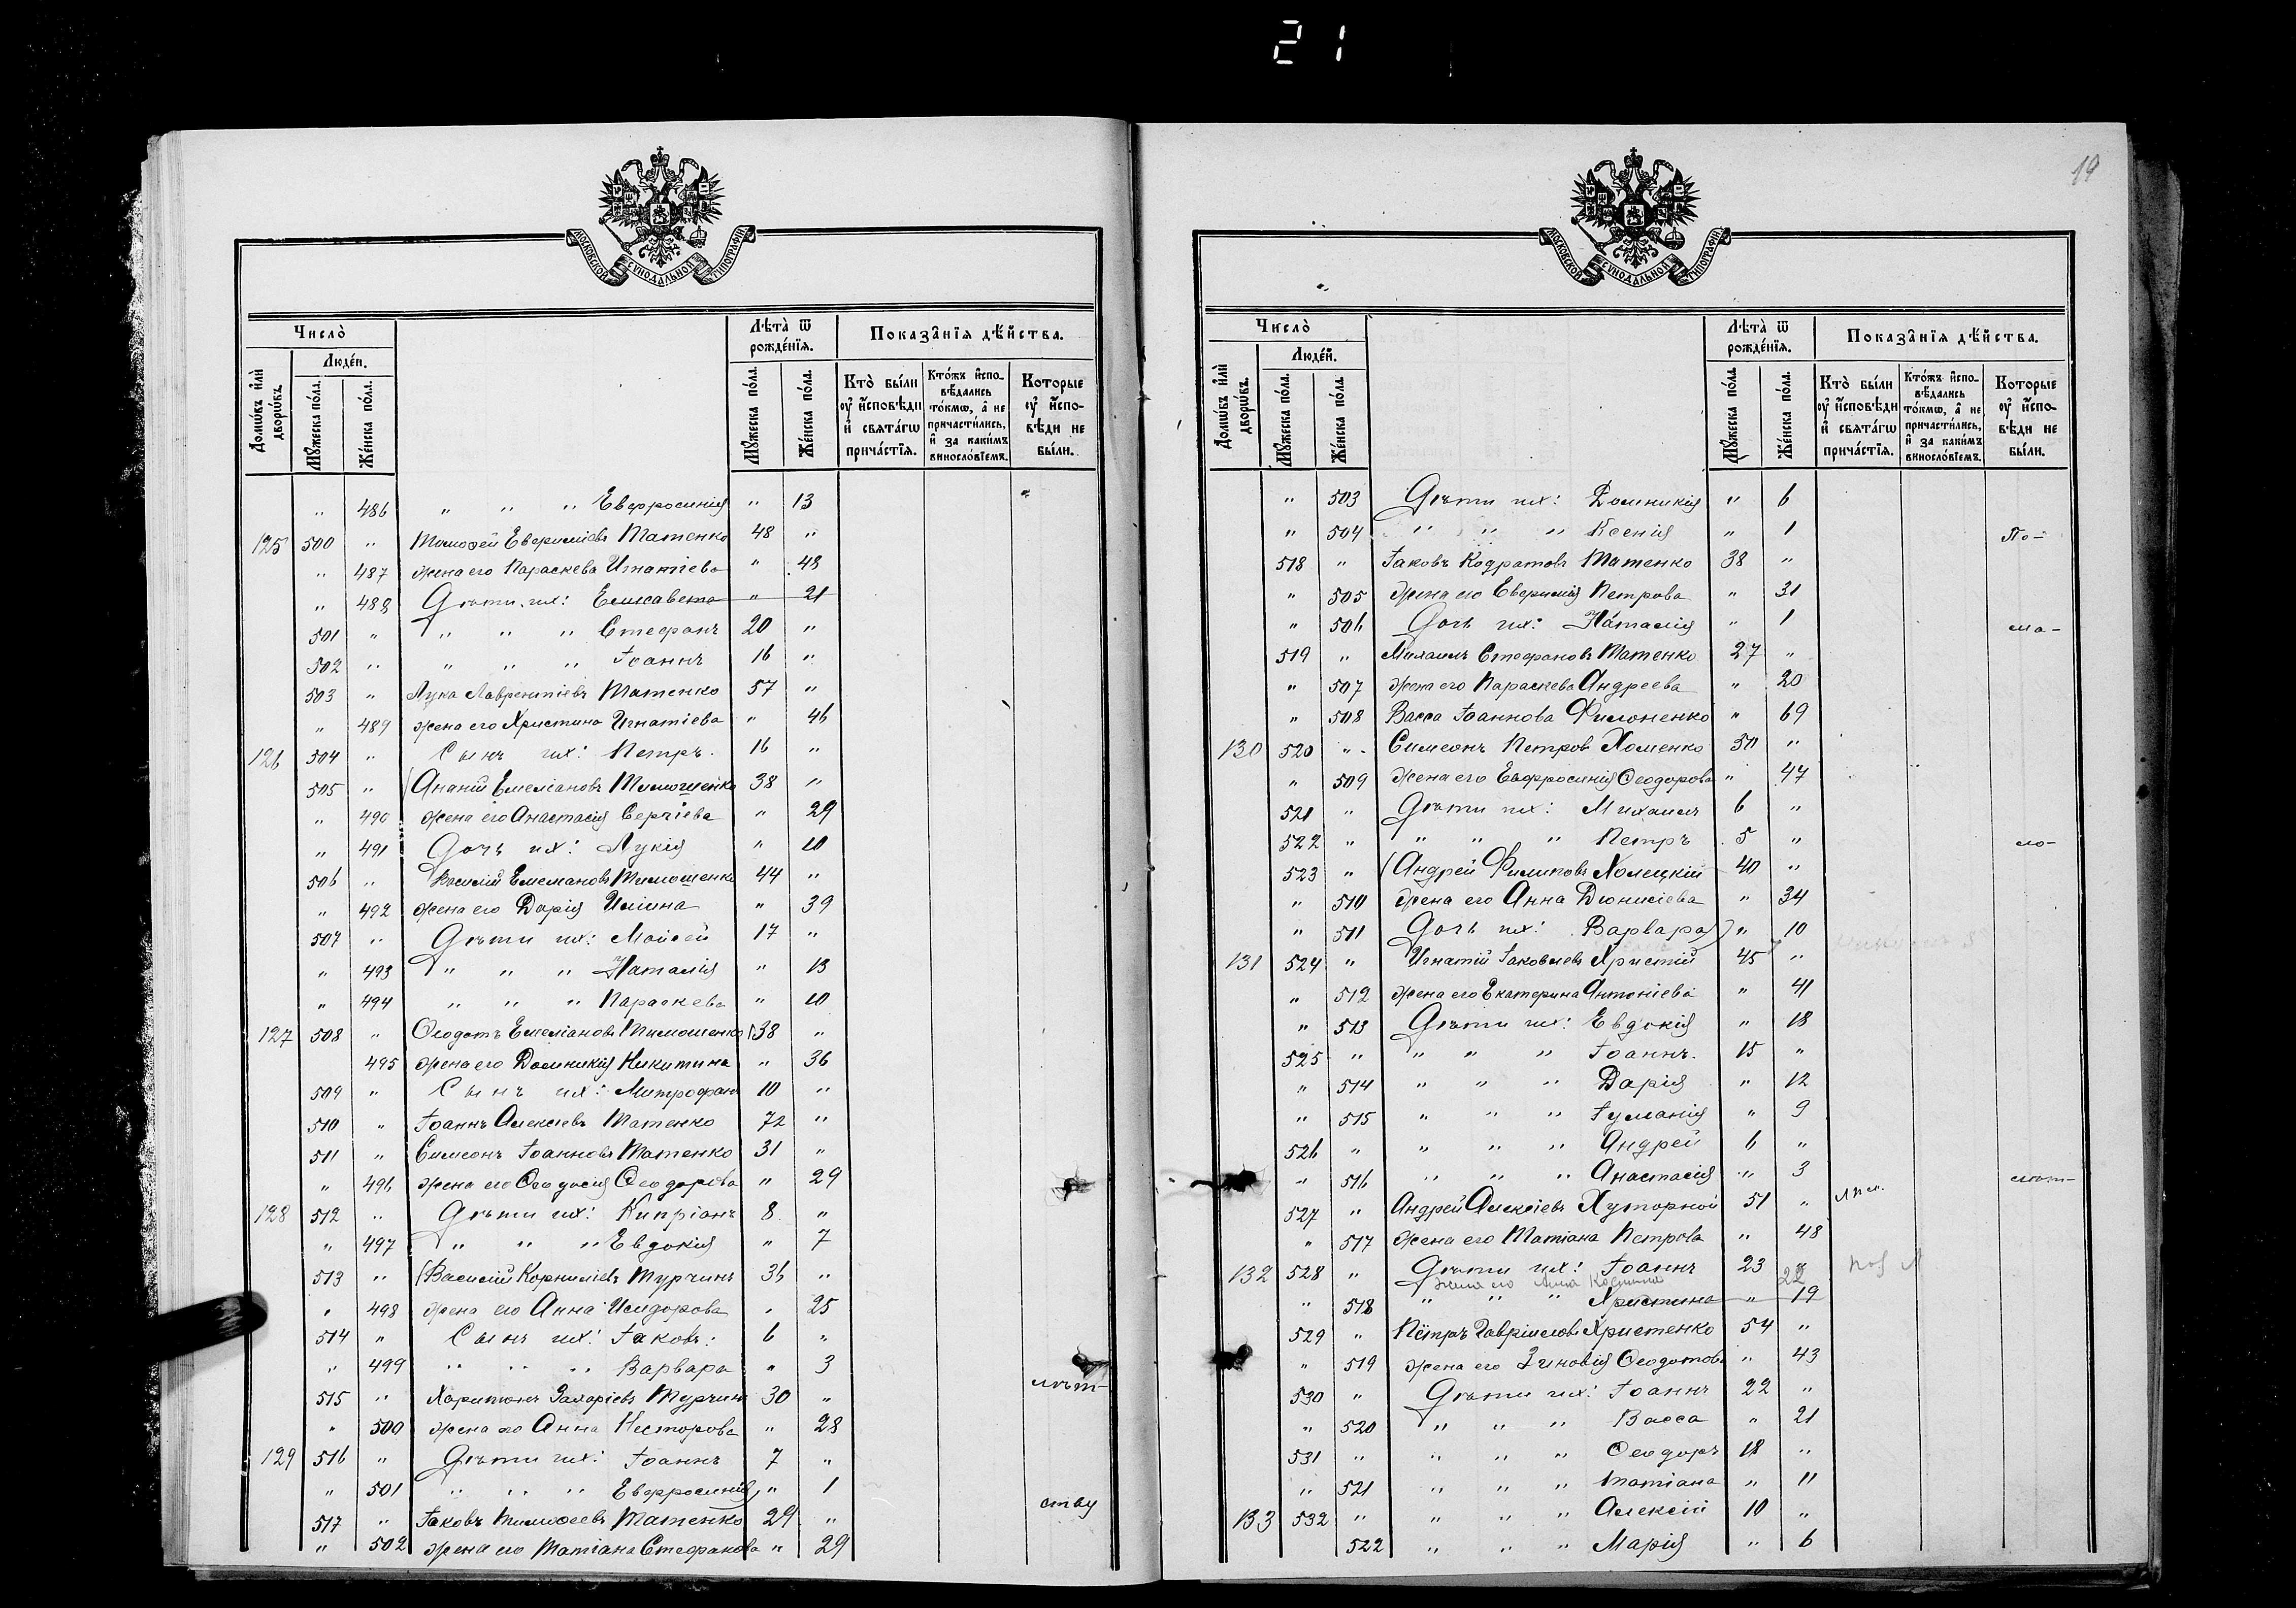 21
МОСКОВСКОЙ СУНОДАЛЬНОЙ ТИПОГРАФІИ
Число̀
Люде́й.
Домѡ́въ и҆лѝ дворѡ́въ.
Мꙋ́жеска по́ла.
Же́нска по́ла.
Лѣ́та ѿ рожде́нїѧ.
Мꙋ́жеска по́ла.
Же́нска по́ла.
Показа̑нїѧ дѣ́йства.
Кто̀ бы́ли оу҆ и҆́сповѣди и҆ свѧта́гѡ прича́стїѧ.
Кто́жъ и҆спо-
вѣ́дались
то́кмѡ, а҆ не
причасти́лись,
и҆ за каки́мъ
винослѡ́вїемъ.
Которые оу҆ и҆́спо-
вѣди не бы́ли.
" 486 " " " Евфросинія " 13
125 500 " Тимоѳей Евѳиміевъ Татенко 48 "
" 487 жена его Параскева Игнатіева " 48
" 488 Дѣти их: Елисавета " 21
501 " " " " Стефанъ 20 "
502 " " " " Іоаннъ 16 "
503 " Лука Лаврентіевъ Татенко 57 "
" 489 жена его Христина Игнатіева " 46
126 504 " Сынъ их: Петръ. 16 "
505 " (Ананій Емеліановъ Тимошенко 38 "
" 490 жена его Анастасія Сергіева " 29
" 491 Дочь их: Лукія " 10
506 " Василій Емеліановъ Тимошенко 44 "
" 492 жена его Дарія Иліина " 39
507 " Дѣти их: Моисей 17 "
" 493 " " " Наталія " 13
" 494 " " " Параскева " 10
127 508 " Ѳеодотъ Емеліановъ Тимошенко 38 "
495 жена его Домникія Никитина " 36
509 " Сынъ их: Митрофанъ 10 "
510 " Іоаннъ Алексіевъ Татенко 72 "
511 " Симеонъ Іоанновъ Татенко 31 "
" 496 жена его Ѳеодосія Ѳеодорова " 29
128 512 " Дѣти их: Кипріанъ 8 "
" 497 " " " Евдокія " 7
513 " (Василій Корниліевъ Турчинъ 36 "
" 498 жена его Анна Исидорова " 25
514 " Сынъ их: Іаковъ: 6 "
" 499 " " " Варвара " 3
лѣт-
515 " Харитонъ Захаріевъ Турчин 30 "
" 500 жена его Анна Несторова " 28
129 516 " Дѣти их: Іоаннъ 7 "
" 501 " " " Евфросинія) " 1
ству
517 " Іаковъ Тимоѳеевъ Татенко 29 "
" 502 жена его Татіана Стефанова " 29
19
МОСКОВСКОЙ СУНОДАЛЬНОЙ ТИПОГРАФІИ
Число̀
Люде́й.
Домѡ́въ и҆лѝ дворѡ́въ.
Мꙋ́жеска по́ла.
Же́нска по́ла.
Лѣ́та ѿ рожде́нїѧ.
Мꙋ́жеска по́ла.
Же́нска по́ла.
Показа̑нїѧ дѣ́йства.
Кто̀ бы́ли оу҆ и҆́сповѣди и҆ свѧта́гѡ прича́стїѧ.
Кто́жъ и҆спо-
вѣ́дались
то́кмѡ, а҆ не
причасти́лись,
и҆ за каки́мъ
винослѡ́вїемъ.
Которые оу҆ и҆́спо-
вѣди не бы́ли.
" 503 Дѣти их: Домникія " 6
" 504 " " " Ксенія " 1
По-
518 " Іаковъ Кодратовъ Татенко 38 "
" 505 жена его Евѳимія Петрова " 31
" 506 Дочь их: Наталія " 1
ма-
519 " Михаилъ Стефановъ Татенко 27 "
" 507 жена его Параскева Андреева " 20
" 508 Васса Іоаннова Филоненко " 69
130 520 " Симеонъ Петров Хоменко 50 "
" 509 жена его Евфросинія Ѳеодорова " 47
521 " Дѣти их: Михаилъ 6 "
522 " " " " Петръ 5 "
ло-
523 " (Андрей Филиповъ Холецкій 40 "
" 510 жена его Анна Діонисіева " 34
" 511 Дочь их: Варвара) " 10
131 524 " Игнатій Іаковлевъ Христій 45 "
" 512 жена его Екатерина Антоніева " 41
" 513 Дѣти их: Евдокія " 18
525 " " " " Іоаннъ. 15 "
" 514 " " " Дарія " 12
" 515 " " " Іуліанія " 9
526 " " " " Андрей 6 "
" 516 " " " Анастасія " 3
лѣт-
527 " Андрей Алексіевъ Хуторной 51 "
" 517 жена его Татіана Петрова " 48
132 528 " Дѣти их: Іоаннъ 23 "
жена его Анна 22
" 518 " " " Христина " 19
529 " Петръ Гавріиловъ Христенко 54 "
" 519 жена его Зиновія Ѳеодотов " 43
530 " Дѣти их: Іоаннъ 22 "
" 520 " " " Васса " 21
531 " " " " Ѳеодоръ 18 "
" 521 " " " Татіана " 11
133 532 " " " " Алексій 10 "
522 " " " Марія " 6